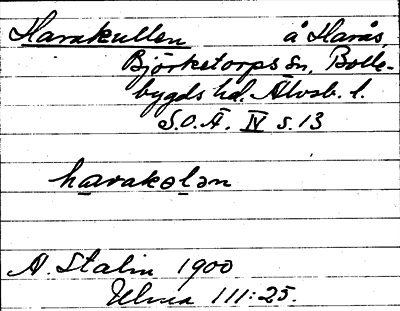 Harakullen å Harås
Björketorps sn. Bolle-
bygds hd. Älvsb. l.
S.O.Ä. IV s. 13
harakolən
A. Stalin 1900
Ulma 111:25.